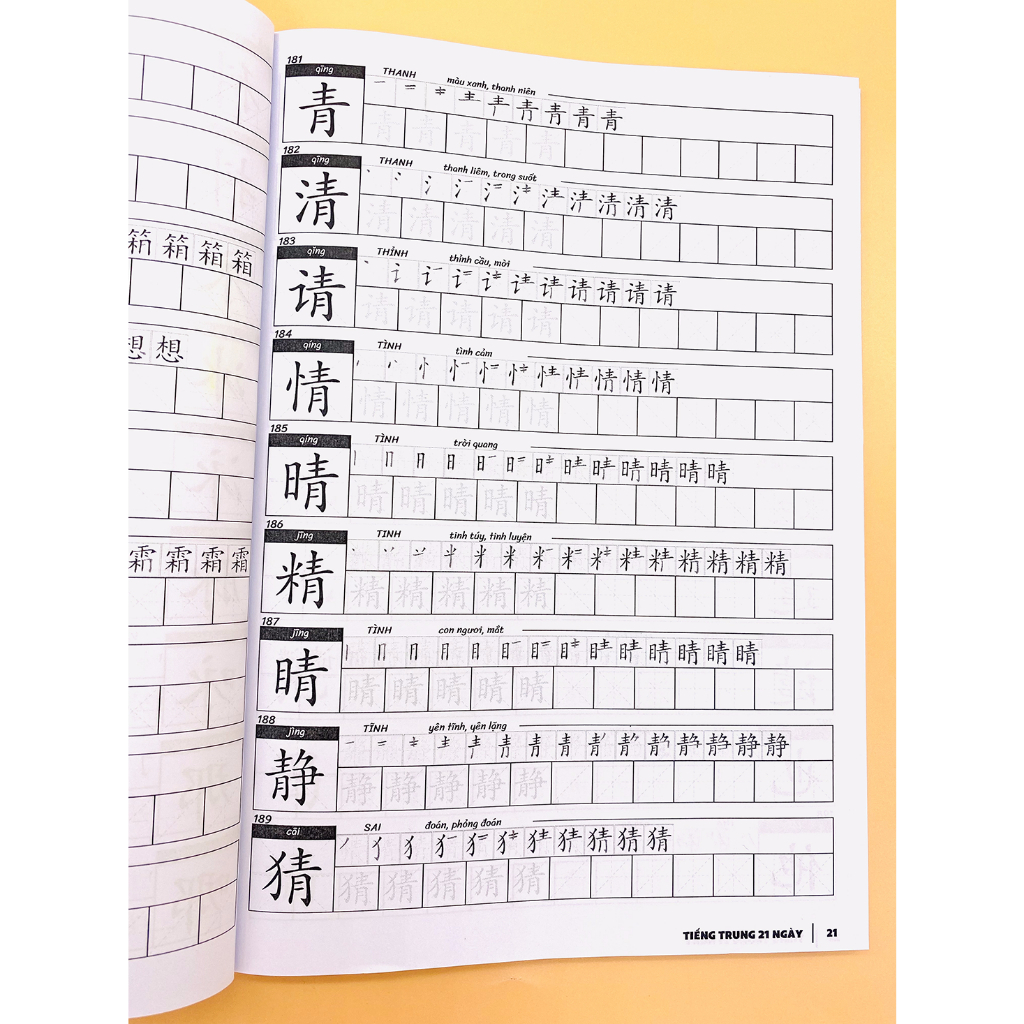 箱 箱 箱
想
霜 霜 霜
181
qīng THANH màu xanh, thanh niên
青 青
青 青 青 青 青
182
qīng THANH thanh liêm, trong suốt
清 清
清 清 清 清 清
183
qǐng THỈNH thỉnh cầu, mời
请 请
请 请 请 请 请
184
qíng TÌNH tình cảm
情 情
情 情 情 情 情
185
qíng TÌNH trời quang
晴 晴
晴 晴 晴 晴 晴
186
jīng TINH tinh túy, tinh luyện
精 精
精 精 精 精 精
187
jīng TÌNH con ngươi, mắt
睛 睛
睛 睛 睛 睛 睛
188
jìng TĨNH yên tĩnh, yên lặng
静 静
静 静 静 静 静
189
cāi SAI đoán, phỏng đoán
猜 猜
猜 猜 猜 猜 猜
TIẾNG TRUNG 21 NGÀY | 21